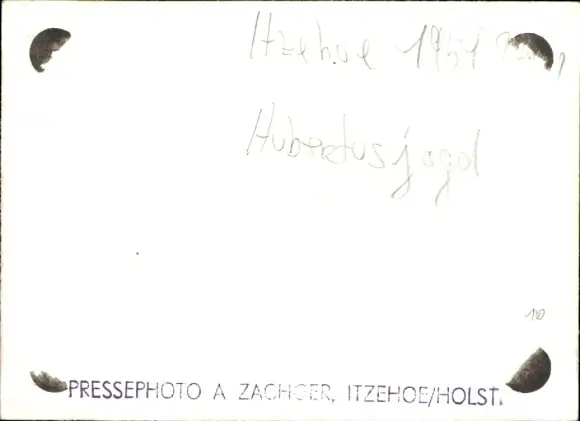 Itzehoe 1951
Hubertusjagd
110
PRESSEPHOTO A ZACHGER, ITZEHOE/HOLST.